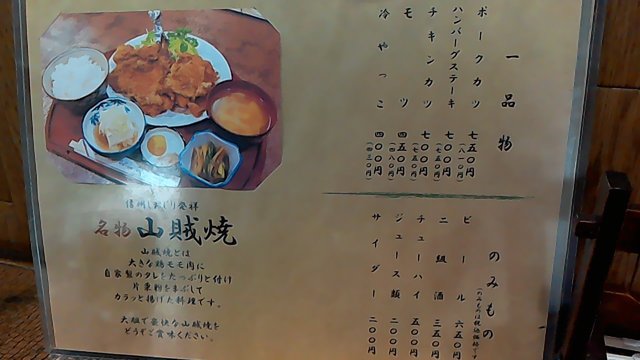 一品物
ポークカツ 七五〇円
(八一〇円)
ハンバーグステーキ 七〇〇円
(七五〇円)
チキンカツ 七〇〇円
(七五〇円)
モツ 四五〇円
(四八〇円)
冷やっこ 四〇〇円
(四三〇円)
のみもの
(のみものは税込価格です)
ビール 六五〇円
二級酒 三五〇円
チューハイ 五〇〇円
ジュース類 二〇〇円
サイダー 二〇〇円
信州しおじり発祥
名物 山賊焼
山賊焼とは
大きな鶏モモ肉に
自家製のタレをたっぷりと付け
片栗粉をまぶして
カラッと揚げた料理です。
大胆で豪快な山賊焼を
どうぞご賞味ください。